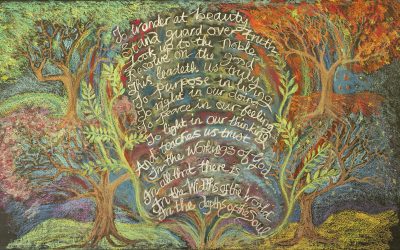 To wonder at beauty
Stand guard over truth
Look up to the noble
Resolve on the good
This leadeth us truly
To purpose in living
To right in our doing
To peace in our feeling
To light in our thinking
And teaches us trust
In the workings of God
In all that there is
In the widths of the world
In the depths of the soul